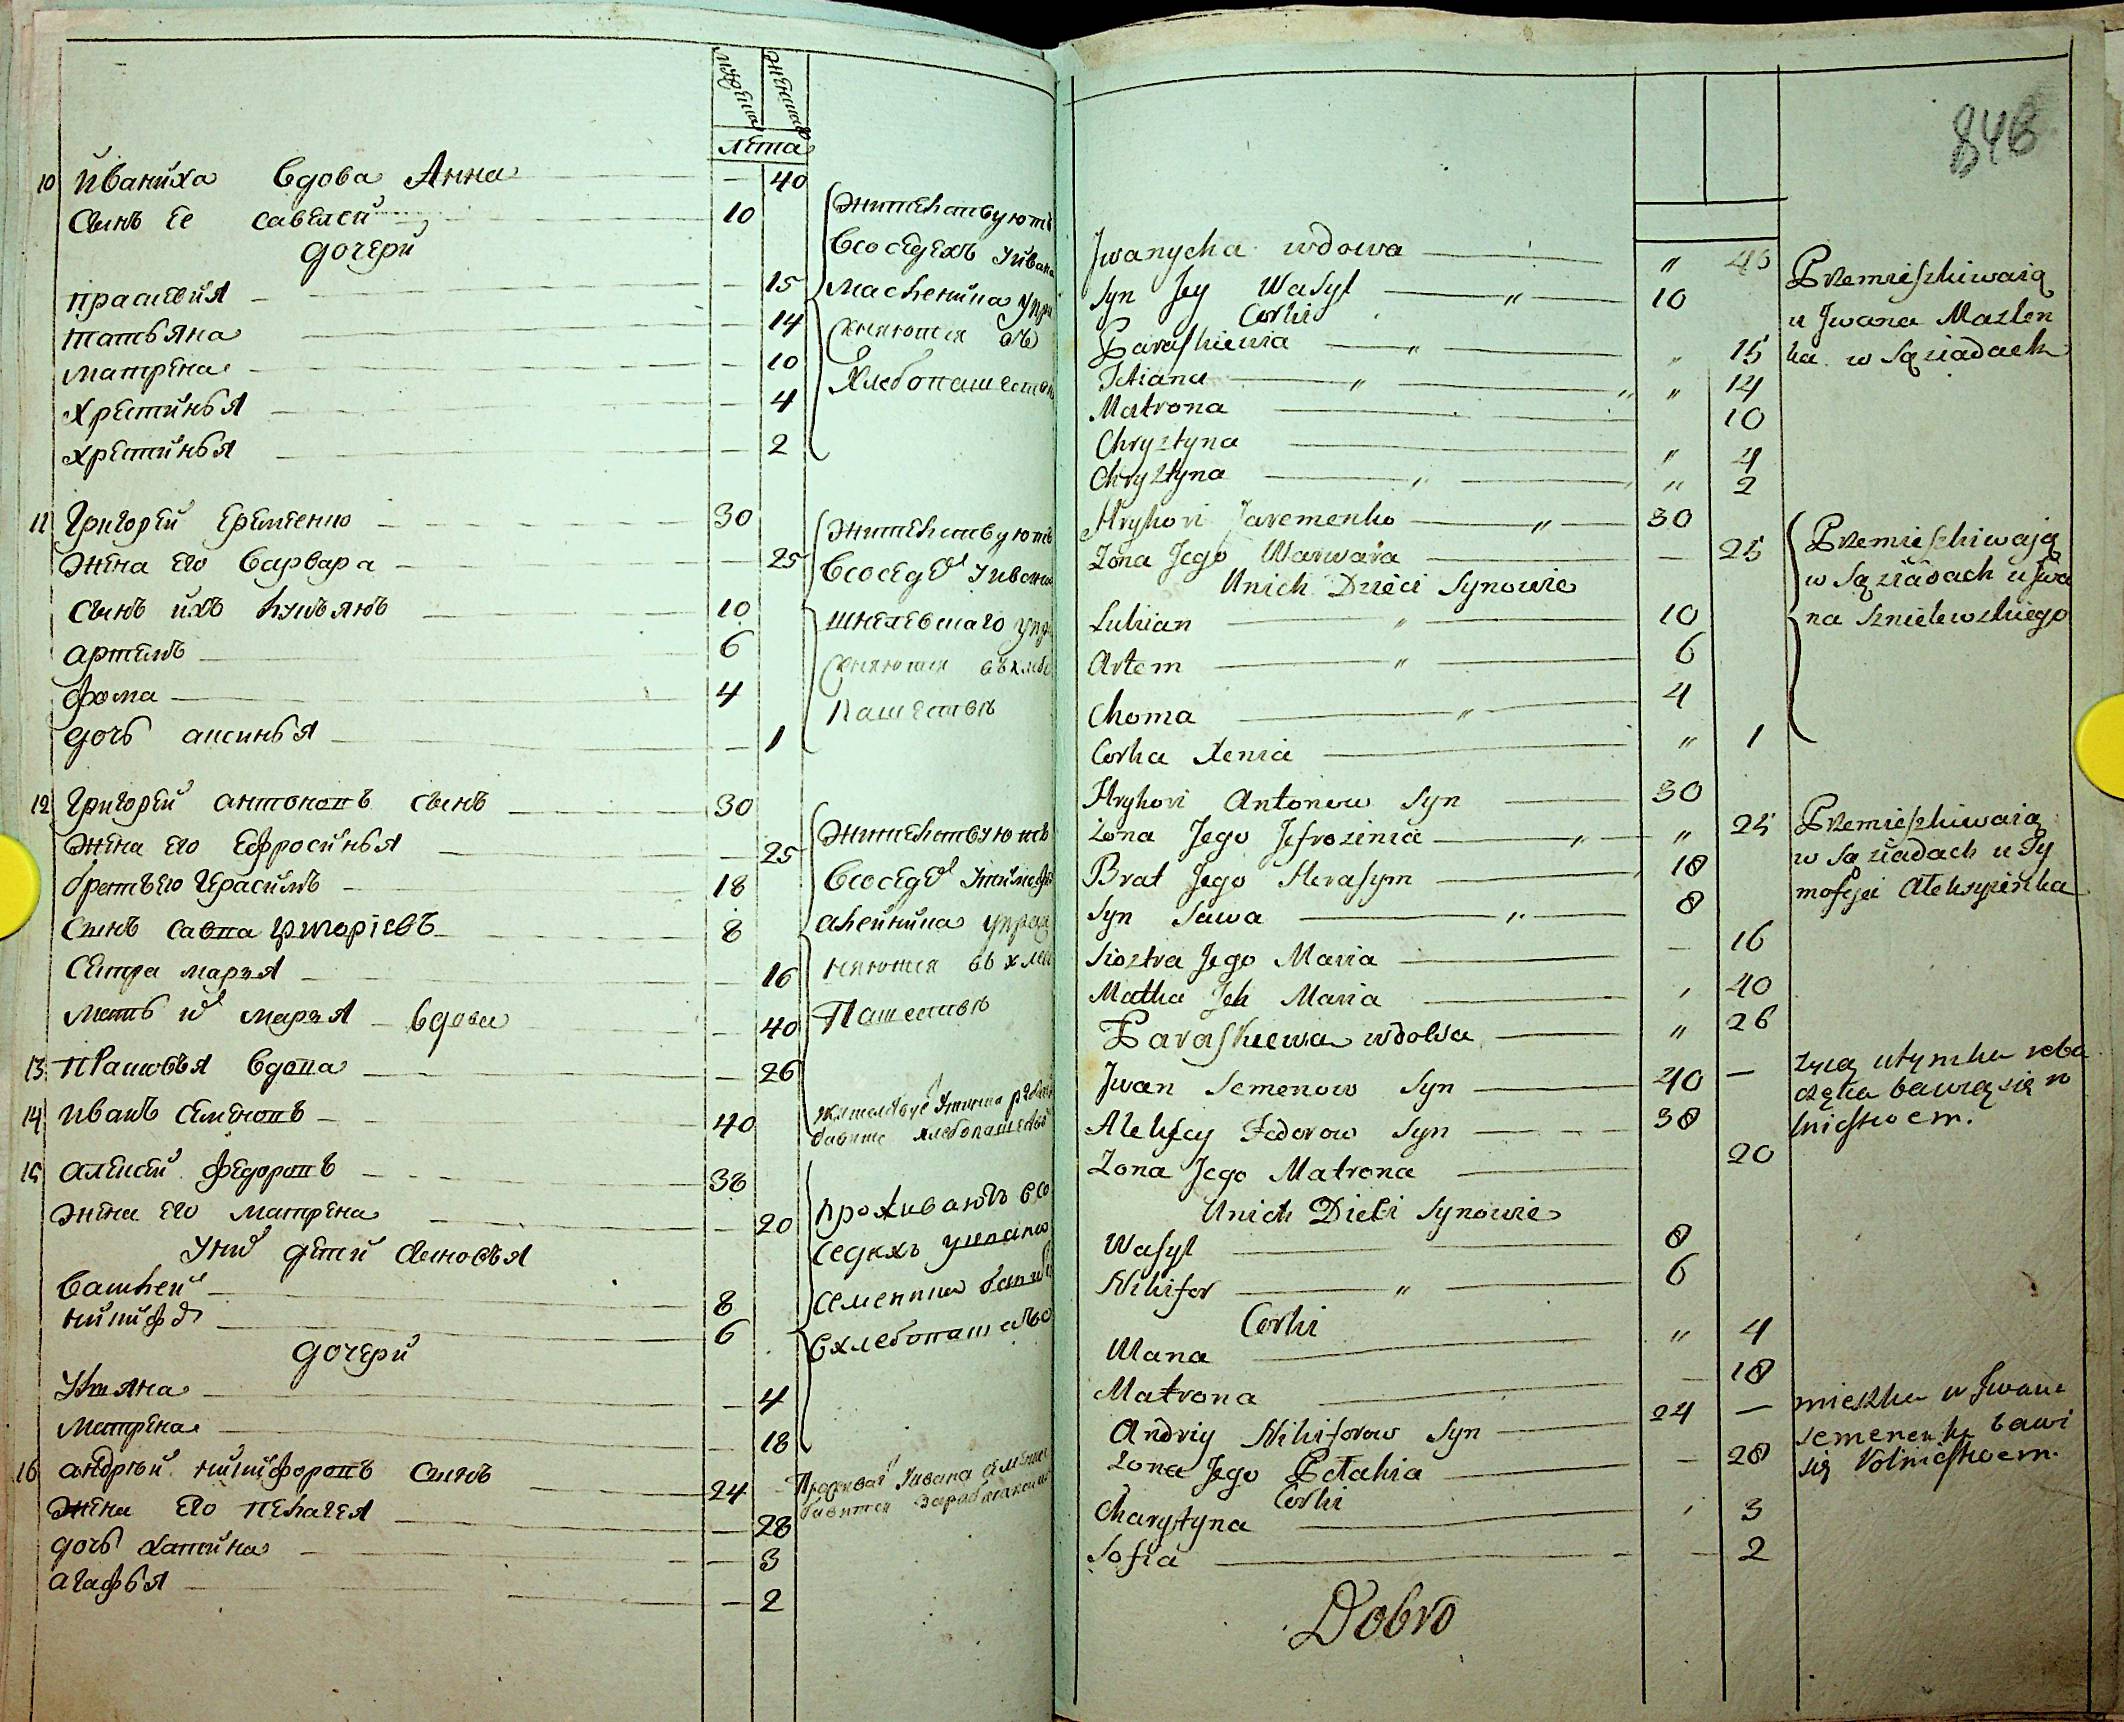 мужеска женска
лета
10 Иваниха вдова Анна — 40
сынъ ее савелей 10
дочери
прасковия — 15
татьяна — 14
матрена — 10
хрестинья — 4
хрестинья — 2
жителствуютъ
всоседехъ уивана
масленика упра
жняются въ
хлебопашестве
11 Григорей Еременко 30
жена Его варвара — 25
сынъ ихъ лукъянъ 10
артемъ 6
фома 4
дочь аксинья — 1
жителствуютъ
всоседех уивана
упра
жняются въ хлебо
пашествѣ
12 Григорей антоновъ сынъ 30
жена Его Ефросинья — 25
братъ Его Герасимъ 18
сынъ савва григорiевъ 8
сестра марья — 16
мать их марья вдова — 40
жителствуютъ
всоседех утимофея
упраж
няются въ хлебо
пашествѣ
13 прасковья вдова — 26
14 иванъ семеновъ 40
15 алексей федоровъ 38
жена Его матрена — 20
уних детей сыновья
василей 8
никифор 6
дочери
ульяна — 4
матрена — 18
проживаютъ всо
седяхъ уивана
семенина бави
вхлебопашество
16 андрѣй никифоровъ сынъ 24
жена Его пелагея — 28
дочь — 3
агафья — 2
848
Jwanycha wdowa " 40
Syn Jey Wasyl " 10
Corki
Paraskiewia " " 15
Tetiana " " 14
Matrona 10
Chrystyna " 4
Chrystyna " " 2
Przemieszkiwaią
u Jwana Maslen
ka w sąziadach
Hryhori Jaremenko " 30
Zona Jego Warwara — 25
Unich Dzieci Synowie
Lukian " 10
Artem " 6
Choma " 4
Corka Xenia " 1
Przemieszkiwają
w sąziadach u Jwa
na Szmielewskiego
Hryhori Antonow Syn 30
Zona Jego Jefrozinia " " 25
Brat Jego Herasym 18
Syn Sawa " 8
Siostra Jego Maria — 16
Matka Jch Maria , 40
Paraskiewa wdowa " 26
Przemieszkiwaią
w sąziadach u Ty
mofeja
Jwan Semenow Syn 40 —
Alexsey Fedorow Syn 38
Zona Jego Matrona 20
Unich Dieti Synowie
Wasyl 8
Nikifor " 6
Corki
Ulana " 4
Matrona — 18
Andriy Nikiforow Syn 24 —
Zona Jego Pelahia — 28
Corki
Charystyna , 3
Sofia — 2
mieszka u Jwana
semenenka bawi
się
Dobro